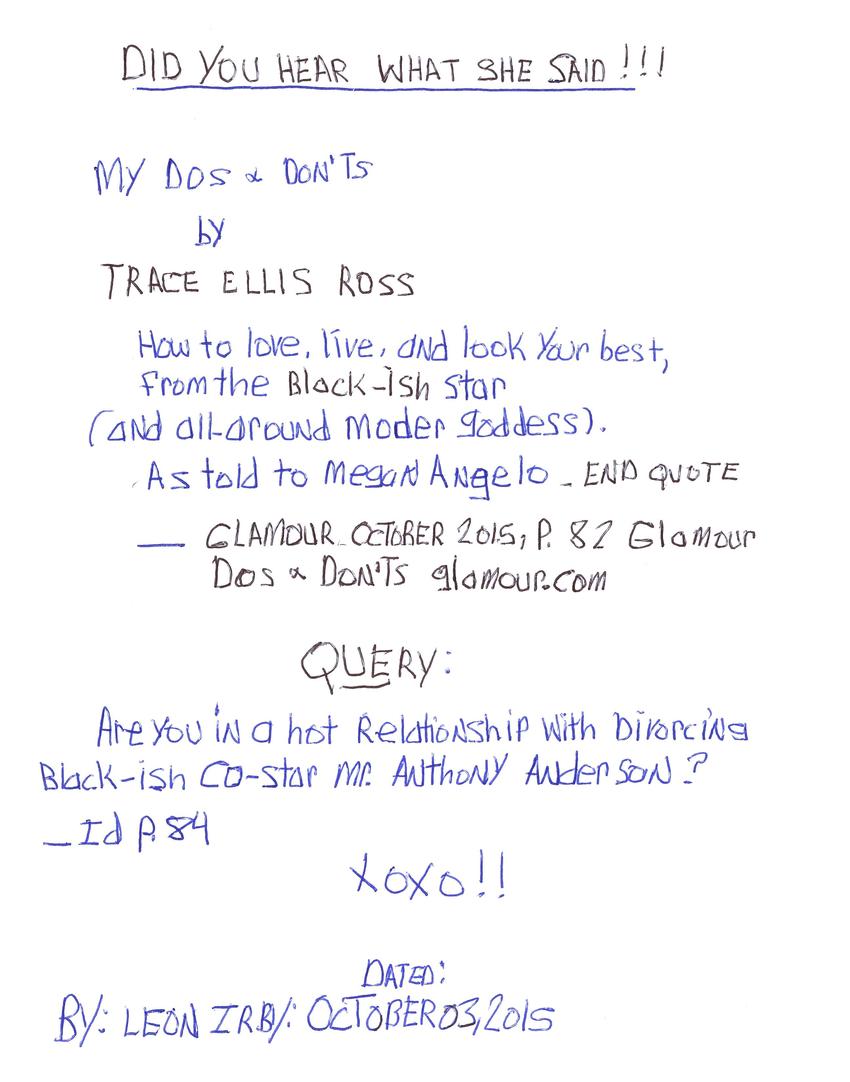 DID YOU HEAR WHAT SHE SAID!!!
MY DOS & DON'TS
by
TRACE ELLIS ROSS
How to love, live, and look Your best,
from the Black-ish star
(and all-around moder goddess).
As told to Megan Angelo _ END QUOTE
— GLAMOUR OCTOBER 2015, P. 82 Glamour
Dos & DON'TS glamour.com
QUERY:
Are you in a hot Relationship with Divorcing
Black-ish Co-star Mr. Anthony Anderson?
_ Id P. 84
XOXO!!
DATED:
BY: LEON IRBY: OCTOBER 03, 2015